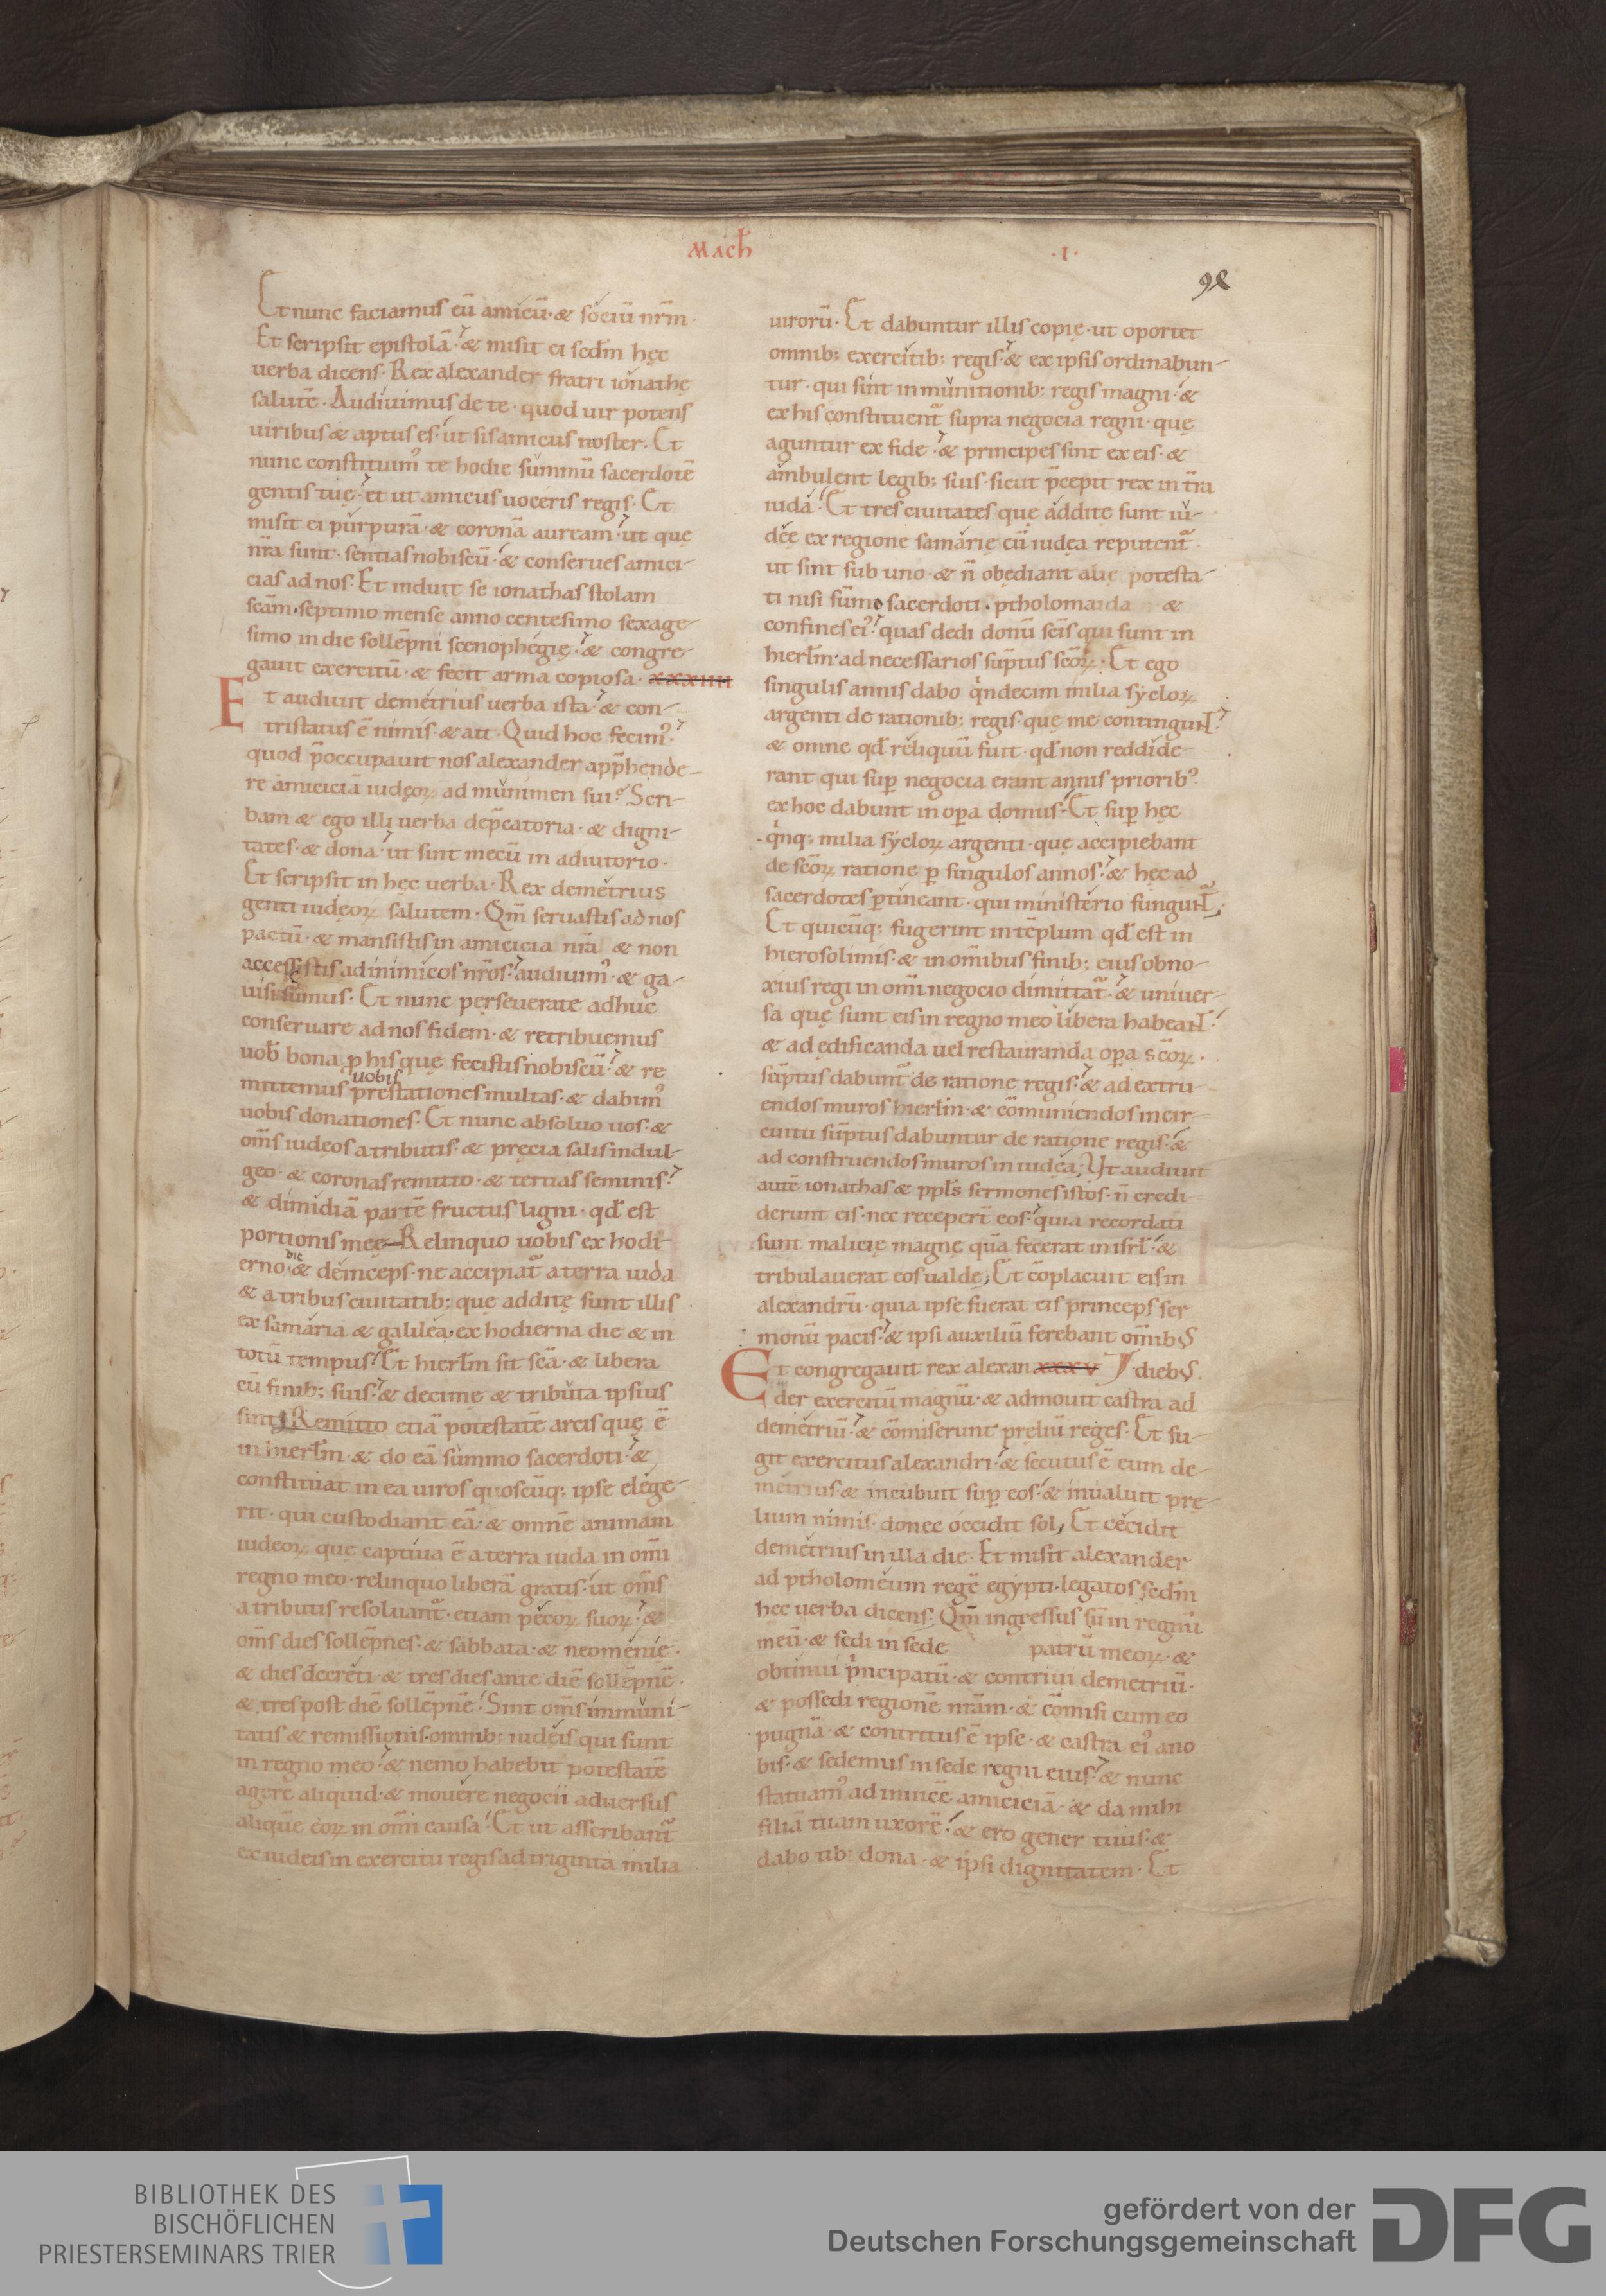 Mach̄ ·I·
98
Et nunc faciamus eū amicū· & sociū nr̄m·
Et scripsit epistolā· & misit ei sc̄dm hęc
uerba dicens· Rex alexander fratri ionathę
salutē· Audiuimus de te· quod uir potens
uiribus & aptus es· ut sis amicus noster· Et
nunc constituim᾽ te hodie summū sacerdotē
gentis tuę· et ut amicus uoceris regis· Et
misit ei purpurā· & coronā auream· ut quę
nr̄a sunt· sentias nobiscū· & conserues amici-
cias ad nos· Et induit se ionathas stolam
sc̄am· septimo mense anno centesimo sexage-
simo in die sollēpni scenophegię· & congre-
gauit exercitū· & fecit arma copiosa· xxxiiii
Et audiuit demetrius uerba ista· & con-
tristatus ē nimis· & ait· Quid hoc fecim᾽·
quod p̄occupauit nos alexander app̄hende-
re amiciciā iudęoꝝ ad munimen sui· Scri-
bam & ego illi uerba dep̄catoria· & digni-
tates· & dona· ut sint mecū in adiutorio·
Et scripsit in hęc uerba· Rex demetrius
genti iudeoꝝ salutem· Qm̄ seruastis ad nos
pactū· & mansistis in amicicia nr̄a & non
accessistis ad inimicos nr̄os· audiuim᾽· & ga-
uisi sumus· Et nunc perseuerate adhuc
conseruare ad nos fidem· & retribuemus
uob̄ bona ꝓ his quę fecistis nobiscū· & re
mittemus uobis prestationes multas· & dabim᾽
uobis donationes· Et nunc absoluo uos· &
om̄s iudęos a tributis· & pręcia salis indul-
geo· & coronas remitto· & tertias seminis·
& dimidiā partē fructus ligni· qd̄ est
portionis meę Relinquo uobis ex hodi-
erno die & deinceps· ne accipiat᷑ a terra iuda
& a tribus ciuitatib; quę additę sunt illis
ex samaria & galilęa, ex hodierna die & in
totū tempus· Et hierl̄m sit sc̄a· & libera
cū finib; suis· & decime & tributa ipsius
sint Remitto etiā potestatē arcis quę ē
in hierl̄m· & do eā summo sacerdoti· &
constituat in ea uiros quoscūq; ipse elege-
rit· qui custodiant eā· & omnē animam
iudeoꝝ quę captiua ē a terra iuda in om̄i
regno meo· relinquo liberā gratis· ut om̄s
a tributis resoluant᷑· etiam pecoꝝ suoꝝ· &
om̄s dies sollēpnes· & sabbata· & neomenię·
& dies decreti· & tres dies ante diē sollēpnē·
& tres post diē sollēpnē· Sint om̄s immuni-
tatis & remissionis· omnib; iudęis qui sunt
in regno meo· & nemo habebit potestatē
agere aliquid· & mouere negocii aduersus
aliquē eoꝝ in om̄i causa· Et ut asscribant᷑
ex iudeis in exercitu regis ad triginta milia
uirorū· Et dabuntur illis copię· ut oportet
omnib; exercitib; regis· & ex ipsis ordinabun-
tur· qui sint in munitionib; regis magni· &
ex his constituent᷑ supra negocia regni· quę
aguntur ex fide· & principes sint ex eis· &
ambulent legib; suis· sicut p̄cepit rex in tr̄a
iuda· Et tres ciuitates quę additę sunt iu-
dęę ex regione samarię cū iudęa reputent᷑·
ut sint sub uno· & n̄ obędiant alię potesta-
ti nisi sūmo sacerdoti· ptholomaida &
confines ei᾽· quas dedi donū sc̄is qui sunt in
hierl̄m· ad necessarios sūptus sc̄oꝝ· Et ego
singulis annis dabo qindecim milia sycloꝝ
argenti de rationib; regis· quę me contingunt·
& omne qd̄ reliquū fuit· qd̄ non reddide-
rant qui suꝑ negocia erant annis priorib᾽·
ex hoc dabunt in oꝑa domus· Et suꝑ hęc
qinq; milia sycloꝝ argenti· quę accipiebant
de sc̄oꝝ ratione ꝑ singulos annos· & hęc ad
sacerdotes ꝑtineant· qui ministerio fungunt᷑·
Et quicūq; fugerint in tēplum qd̄ est in
hierosolimis· & in om̄ibus finib; eius obno-
xius regi in om̄i negocio dimittat᷑· & uniuer-
sa quę sunt eis in regno meo libera habeant·
& ad ędificanda uel restauranda oꝑa sc̄oꝝ·
sūptus dabunt᷑ de ratione regis· & ad extru-
endos muros hierl̄m· & cōmuniendos in cir-
cuitu sūptus dabuntur de ratione regis· &
ad construendos muros in iudęa; Ut audiuit
autē ionathas & ppl̄s sermones istos· n̄ credi-
derunt eis· nec receper̄t eos· quia recordati
sunt malicię magnę quā fecerat in isrl̄· &
tribulauerat eos ualde; Et cōplacuit eis in
alexandrū· quia ipse fuerat eis princeps ser
monū pacis· & ipsi auxiliū ferebant om̄ibꝰ
Et congregauit rex alexan xxxv diebꝰ·
der exercitū magnū· & admouit castra ad
demetriū· & cōmiserunt pręliū reges· Et fu-
git exercitus alexandri· & secutus ē eum de-
metrius· & incubuit suꝑ eos· & inualuit pre-
lium nimis· donec occidit sol, Et cecidit
demetrius in illa die· Et misit alexander
ad ptholomeum regē egypti· legatos sc̄dm
hec uerba dicens· Qm̄ ingressus sū in regnū
meū· & sedi in sede patrū meoꝝ· &
obtinui pincipatū· & contriui demetriū·
& possedi regionē nr̄am· & cōmisi cum eo
pugnā· & contritus ē ipse· & castra ei᾽ a no
bis· & sedemus in sede regni eius· & nunc
statuam᾽ ad inuicē amiciciā· & da mihi
filiā tuam uxorē· & ero gener tuus· &
dabo tib; dona· & ipsi dignitatem· Et
BIBLIOTHEK DES
BISCHÖFLICHEN
PRIESTERSEMINARS TRIER
gefördert von der
Deutschen Forschungsgemeinschaft
DFG